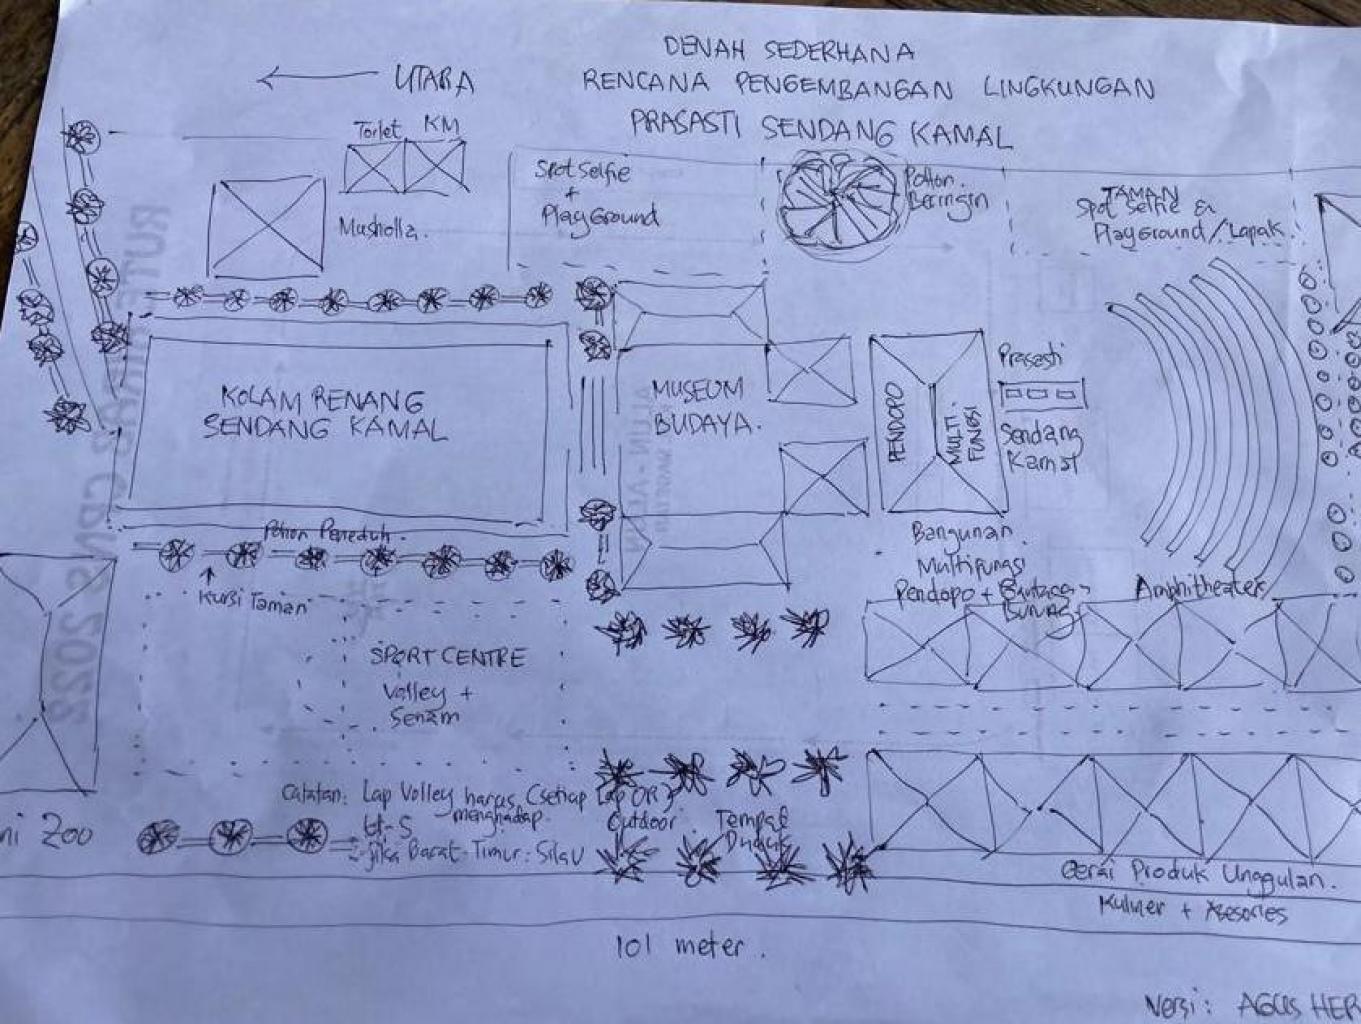 DENAH SEDERHANA
RENCANA PENGEMBANGAN LINGKUNGAN
PRASASTI SENDANG KAMAL
UTARA
Toilet KM
Musholla.
Spot Selfie
+
PlayGround
Pohon
Beringin
TAMAN
Spot Selfie &
PlayGround/Lapak
KOLAM RENANG
SENDANG KAMAL
MUSEUM
BUDAYA.
PENDOPO
MULTI.
FUNGSI
Prasasti
Sendang
Kamal
Pohon Peneduh.
Kursi Taman
Bangunan
Multifungsi
Pendopo +
Amphitheater
SPORT CENTRE
Volley +
Senam
Catatan: Lap Volley harus (setiap Lap OR)
menghadap
U-S
Jika Barat-Timur: Silau
Outdoor
Tempat
Duduk
ni Zoo
Gerai Produk Unggulan.
Kuliner + Asesories
101 meter.
Versi: AGUS HER
RUTE
2022